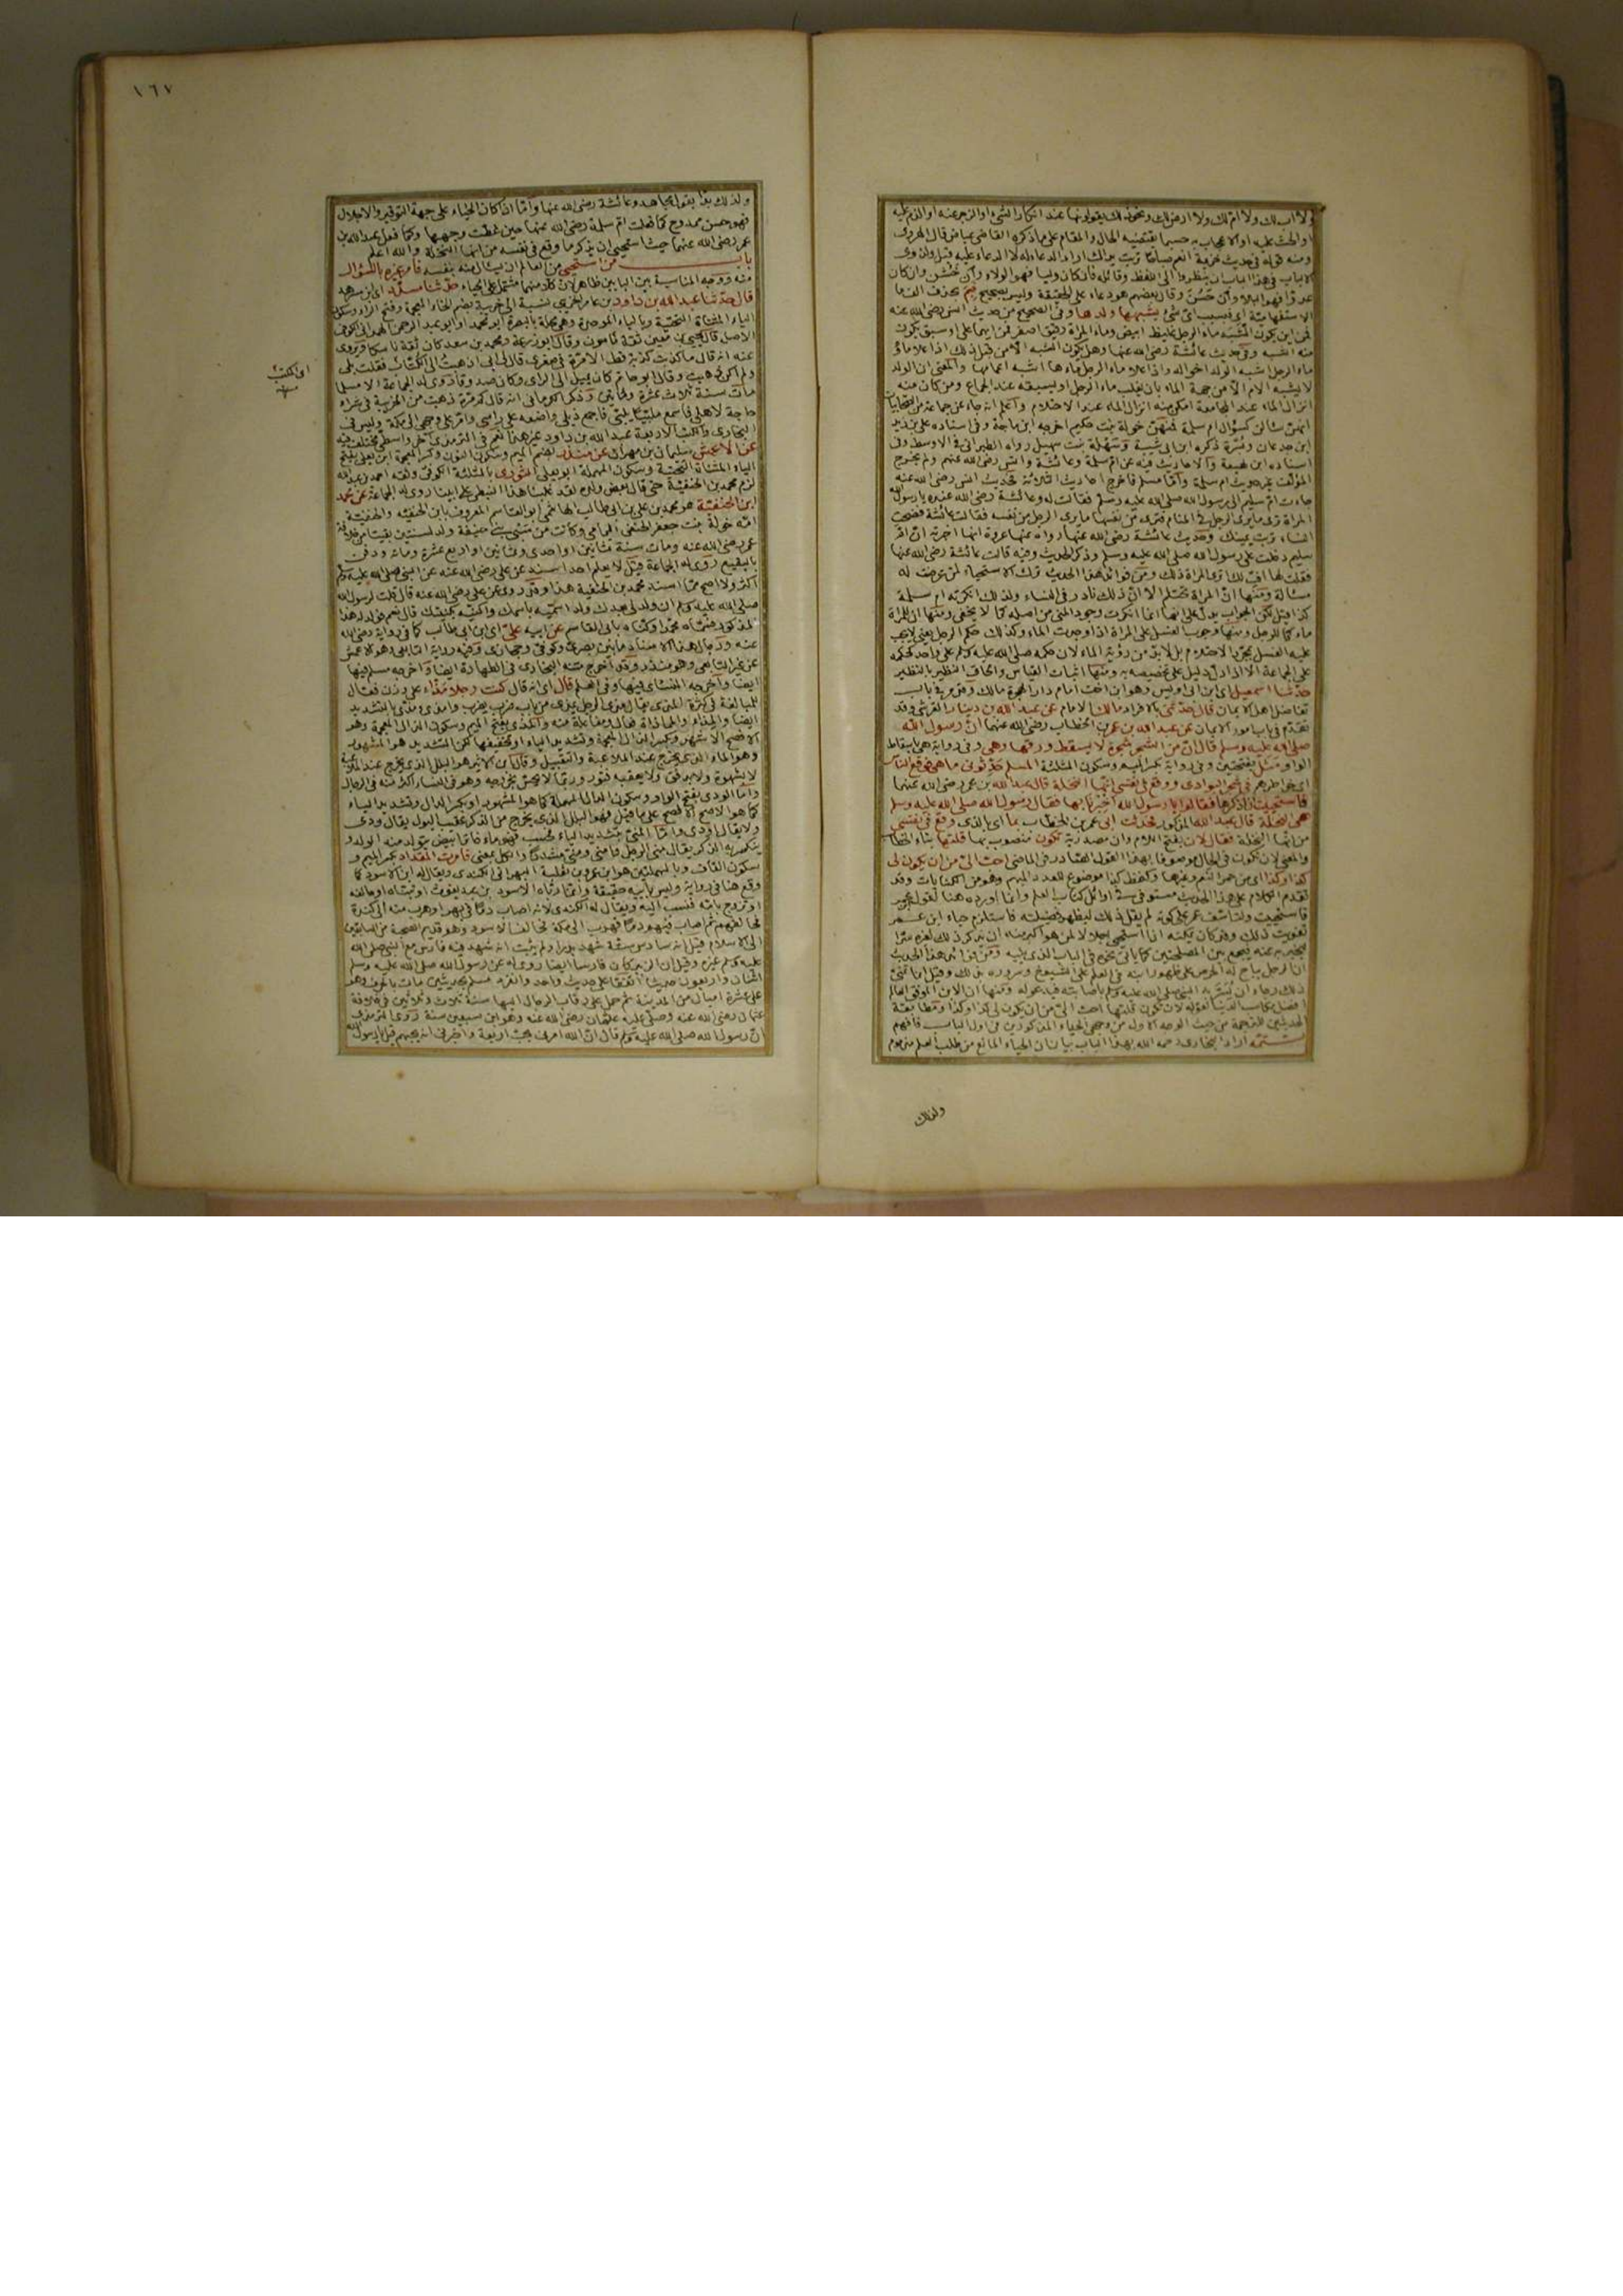 ولا اب لك ولا ام لك ولا ارض لك ونحو ذلك يقولونها عند انكار الشيء او الزجر عنه او الذم عليه
او الحث عليه او الاعجاب به حسبما يقتضيه الحال والمقام على ما ذكره القاضي عياض قال الهروي
ومنه قوله في حديث خزيمة انعم صباحا تربت يداك اراد الدعاء له لا الدعاء عليه
الالباب في هذا الباب ان ينظروا الى اللفظ وقائله فان كان وليا فهو الولاء وان خشن وان كان
عدوا فهو البلاء وان حسن وقال بعضهم هو دعاء على الحقيقة وليس بصحيح فبم بحذف الف ما
الاستفهامية اي فبسبب اي شيء يشبهها ولدها وفي الصحيح من حديث انس رضي الله عنه
فمن اين يكون الشبه ماء الرجل غليظ ابيض وماء المراة رقيق اصفر فمن ايهما علا او سبق يكون
منه الشبه وفي حديث عائشة رضي الله عنها وهل يكون الشبه الا من قبل ذلك اذا علا ماؤها
ماء الرجل اشبه الولد اخواله واذا علا ماء الرجل ماءها اشبه اعمامه والمعنى ان الولد
لا يشبه الام الا من جهة الماء بان يغلب ماء الرجل او ليسبقه عند الجماع ومن كان منه
انزال الماء عند المجامعة امكن منه انزال الماء عند الاحتلام واعلم انه جاء عن جماعة من الصحابيات
انهن سالن كسؤال ام سلمة فمنهن خولة بنت حكيم اخرجه ابن ماجة وفي اسناده علي بن زيد
ابن جدعان وبسرة ذكره ابن ابي شيبة وسهلة بنت سهيل رواه الطبراني في الاوسط وفي
اسناده ابن لهيعة والاحاديث فيه عن ام سلمة وعائشة وانس رضي الله عنهم ولم يخرج
المؤلف غير حديث ام سلمة واما مسلم فاخرج احاديث الثلاثة فحديث انس رضي الله عنه
جاءت ام سليم الى رسول الله صلى الله عليه وسلم فقالت له وعائشة رضي الله عنها عنده يا رسول الله
المراة ترى ما يرى الرجل في المنام فترى من نفسها ما يرى الرجل من نفسه فقالت عائشة فضحت
النساء تربت يمينك وحديث عائشة رضي الله عنها رواه عنها عروة انها اخبرته ان ام
سليم دخلت على رسول الله صلى الله عليه وسلم وذكر الحديث وفيه قالت عائشة رضي الله عنها
فقلت لها اف لك اترى المراة ذلك ومن فوائد هذا الحديث ترك الاستحياء لمن عرضت له
مسئالة ومنها ان المراة تحتلم الا ان ذلك نادر في النساء ولذلك انكرته ام سلمة
كذا قيل لكن الجواب يدل على انها انما انكرت وجود المني من اصله كما لا يخفى ومنها ان للمراة
ماء كما للرجل ومنها وجوب الغسل على المراة اذا وجدت الماء وكذلك حكم الرجل يعني لا يجب
عليه الغسل بمجرد الاحتلام بل لا بد من رؤية الماء لان حكمه صلى الله عليه وسلم على واحد كحكمه
على الجماعة الا اذا دل دليل على تخصيصه به ومنها اثبات القياس والحاق النظير بالنظير
حدثنا اسمعيل اي ابن ابي اويس وهو ابن اخت امام دار الهجرة مالك وقد مر في باب
تفاضل اهل الايمان قال حدثني بالافراد مالك الامام عن عبد الله بن دينار القرشي وقد
تقدم في باب امور الايمان عن عبد الله بن عمر بن الخطاب رضي الله عنهما ان رسول الله
صلى الله عليه وسلم قال ان من الشجر شجرة لا يسقط ورقها وهي وفي رواية هي باسقاط
الواو مثل بفتحتين وفي رواية بكسر الميم وسكون المثلثة المسلم حدثوني ما هي فوقع الناس
اي خواطرهم في شجر البوادي ووقع في نفسي انها النخلة قال عبد الله بن عمر رضي الله عنهما
فاستحييت ان اذكرها فقالوا يا رسول الله اخبرنا بها فقال رسول الله صلى الله عليه وسلم
هي النخلة قال عبد الله المذكور فحدثت ابي عمر بن الخطاب بما اي بالذي وقع في نفسي
من انها النخلة فقال لان بفتح اللام وان مصدرية تكون منصوب بها قلتها بتاء الخطاب
والمعنى لان تكون في الحال موصوفا بهذا القول الصادر في الماضي احب الي من ان يكون لي
كذا وكذا اي من حمر النعم وغيرها ولفظ كذا موضوع للعدد المبهم وهو من الكنايات وقد
تقدم الكلام على هذا الحديث مستوفى في اوائل كتاب العلم وانما اورده هنا لقول ابن عمر
فاستحييت ولتاسف عمر على كونه لم يقل ذلك ليظهر فضيلته فاستلزم حياء ابن عمر
تفويت ذلك وقد كان يمكنه اذا استحيى اجلالا لمن هو اكبر منه ان يذكر ذلك لغيره سرا
ليخبر به عنه فيجمع بين المصلحتين كما ياتي نحوه في الباب الذي يليه ومن فوائد هذا الحديث
ان الرجل يباح له الحرص على ظهور ابنه في العلم على الشيوخ وسروره بذلك وقيل انما تمنى
ذلك رجاء ان يسر به النبي صلى الله عليه وسلم باصابته فيدعو له ومنها ان الابن الموفق العالم
افضل مكاسب الدنيا لقوله لان تكون قلتها احب الي من ان يكون لي كذا وكذا ومطابقة
الحديثين للترجمة من حيث الوجه الاول من وجهي الحياء المذكورين في اول الباب فافهم
تتمه اراد البخاري رحمه الله بهذا الباب بيان ان الحياء المانع من طلب العلم مذموم
ولذلك
١٦٧
ولذلك بدا بقول مجاهد وعائشة رضي الله عنها واما اذا كان الحياء على جهة التوقير والاجلال
فهو حسن ممدوح كما فعلت ام سلمة رضي الله عنها حين غطت وجهها وكما فعل عبد الله بن
عمر رضي الله عنهما حيث استحيى ان يذكر ما وقع في نفسه من انها النخلة والله اعلم
باب من استحيى من العالم ان يسال منه بنفسه فامر غيره بالسؤال
منه ووجه المناسبة بين البابين ظاهر لان كلا منهما مشتمل على الحياء حدثنا مسدد اي ابن مسرهد
قال حدثنا عبد الله بن داود بن عامر الخريبي نسبة الى خريبة بضم الخاء المعجمة وفتح الراء وسكون
الياء المثناة التحتية وبالباء الموحدة وهي محلة بالبصرة ابو محمد او ابو عبد الرحمن الهمداني الكوفي
الاصل قال يحيى بن معين ثقة مامون وقال ابو زرعة ومحمد بن سعد كان ثقة ناسكا ويروى
عنه انه قال ما كذبت كذبة قط الا مرة في صغري قال لي ابي اذهبت الى الكتاب فقلت بلى
ولم اكن ذهبت وقال ابو حاتم كان يميل الى الراي وكان صدوقا روى له الجماعة الا مسلما
مات سنة ثلاث عشرة ومائتين وذكر الكرماني انه قال
حاجة لاهلي فاسمع ملبيا يلبي فاجمع ذيلي واضعه على راسي وامر على وجهي الى مكة وليس في
البخاري والكتب الاربعة عبد الله بن داود غير هذا نعم في الترمذي اخر واسطي مختلف فيه
عن الاعمش سليمان بن مهران عن منذر بضم الميم وسكون النون وكسر المعجمة ابن يعلى بفتح
الياء المثناة التحتية وسكون المهملة ابو يعلى الثوري بالمثلثة الكوفي وثقه احمد بن عبد الله
لزم محمد بن الحنفية حتى قال بعض ولده لقد غلبنا هذا النبطي على ابينا روى له الجماعة عن محمد
ابن الحنفية هو محمد بن علي بن ابي طالب الهاشمي ابو القاسم المعروف بابن الحنفية والحنفية
امه خولة بنت جعفر الحنفي اليمامي وكانت من سبي بني حنيفة ولد لسنتين بقيتا من خلافة
عمر رضي الله عنه ومات سنة ثمانين او احدى وثمانين او اربع عشرة ومائة ودفن
بالبقيع روى له الجماعة قيل لا يعلم احد اسند عن علي رضي الله عنه عن النبي صلى الله عليه وسلم
اكثر ولا اصح مما اسند محمد بن الحنفية هذا وقد روي عن علي رضي الله عنه قال قلت لرسول الله
صلى الله عليه وسلم ان ولد لي بعدك ولد اسميه باسمك واكنيه بكنيتك قال نعم فولد له هذا
المذكور فسماه محمدا وكناه بابي القاسم عن ابيه علي اي ابن ابي طالب كما في رواية رضي الله
عنه ورجال هذا الاسناد ما بين بصري وكوفي وحجازي وفيه رواية التابعي وهو الاعمش
عن غير التابعي وهو منذر وقد اخرج متنه البخاري في الطهارة ايضا واخرجه مسلم فيها
ايضا واخرجه النسائي فيها وفي العلم قال اي انه قال كنت رجلا مذاء على وزن فعال
للمبالغة في كثرة المذي يقال مذى الرجل يمذي من باب ضرب يضرب وامذى ومذى بالتشديد
ايضا والمذاء والمماذاة فعال ومفاعلة منه والمذي بفتح الميم وسكون الذال المعجمة وهو
الافصح الاشهر وبكسر الذال المعجمة وتشديد الياء او تخفيفها لكن التشديد هو المشهور
وهو الماء الذي يخرج عند الملاعبة والتقبيل وقال ابن الاثير هو البلل الذي يخرج عند الملاعبة
لا بشهوة ولا بدفق ولا يعقبه فتور وربما لا يحس بخروجه وهو في النساء اكثر منه في الرجال
واما الودي بفتح الواو وسكون الدال المهملة كما هو المشهور او بكسر الدال وتشديد الياء
كما هو الاصح الافصح على ما قيل فهو البلل الذي يخرج من الذكر عقب البول يقال ودى
ولا يقال اودى واما المني بتشديد الياء فحسب فهو ماء خاثر ابيض يتولد منه الولد و
ينكسر به الذكر يقال منى الرجل وامنى ومنى مشددا والكل بمعنى فامرت المقداد بكسر الميم و
سكون القاف وبالمهملتين هو ابن عمرو بن ثعلبة البهراني الكندي ويقال له ابن الاسود كما
وقع هنا في رواية وليس بابيه حقيقة وانما رباه الاسود بن عبد يغوث او تبناه او حالفه
او تزوج بامه فنسب اليه ويقال له الكندي لانه اصاب دما في بهراء فهرب منه الى كندة
فحالفهم ثم اصاب فيهم دما فهرب الى مكة فحالف الاسود وهو قديم الصحبة من السابقين
الى الاسلام قيل انه سادس ستة شهد بدرا ولم يثبت انه شهد فيه فارس مع النبي صلى الله
عليه وسلم غيره وقيل ان الزبير كان فارسا ايضا روي له عن رسول الله صلى الله عليه وسلم
اثنان واربعون حديثا اتفقا على حديث واحد وانفرد مسلم بثلاثة مات بالجرف وهو
على عشرة اميال من المدينة ثم حمل على رقاب الرجال اليها سنة ثلاث وثلاثين في خلافة
عثمان رضي الله عنه وصلى عليه عثمان رضي الله عنه وهو ابن سبعين سنة روى الترمذي
ان رسول الله صلى الله عليه وسلم قال ان الله امرني بحب اربعة واخبرني انه يحبهم قيل يا رسول الله